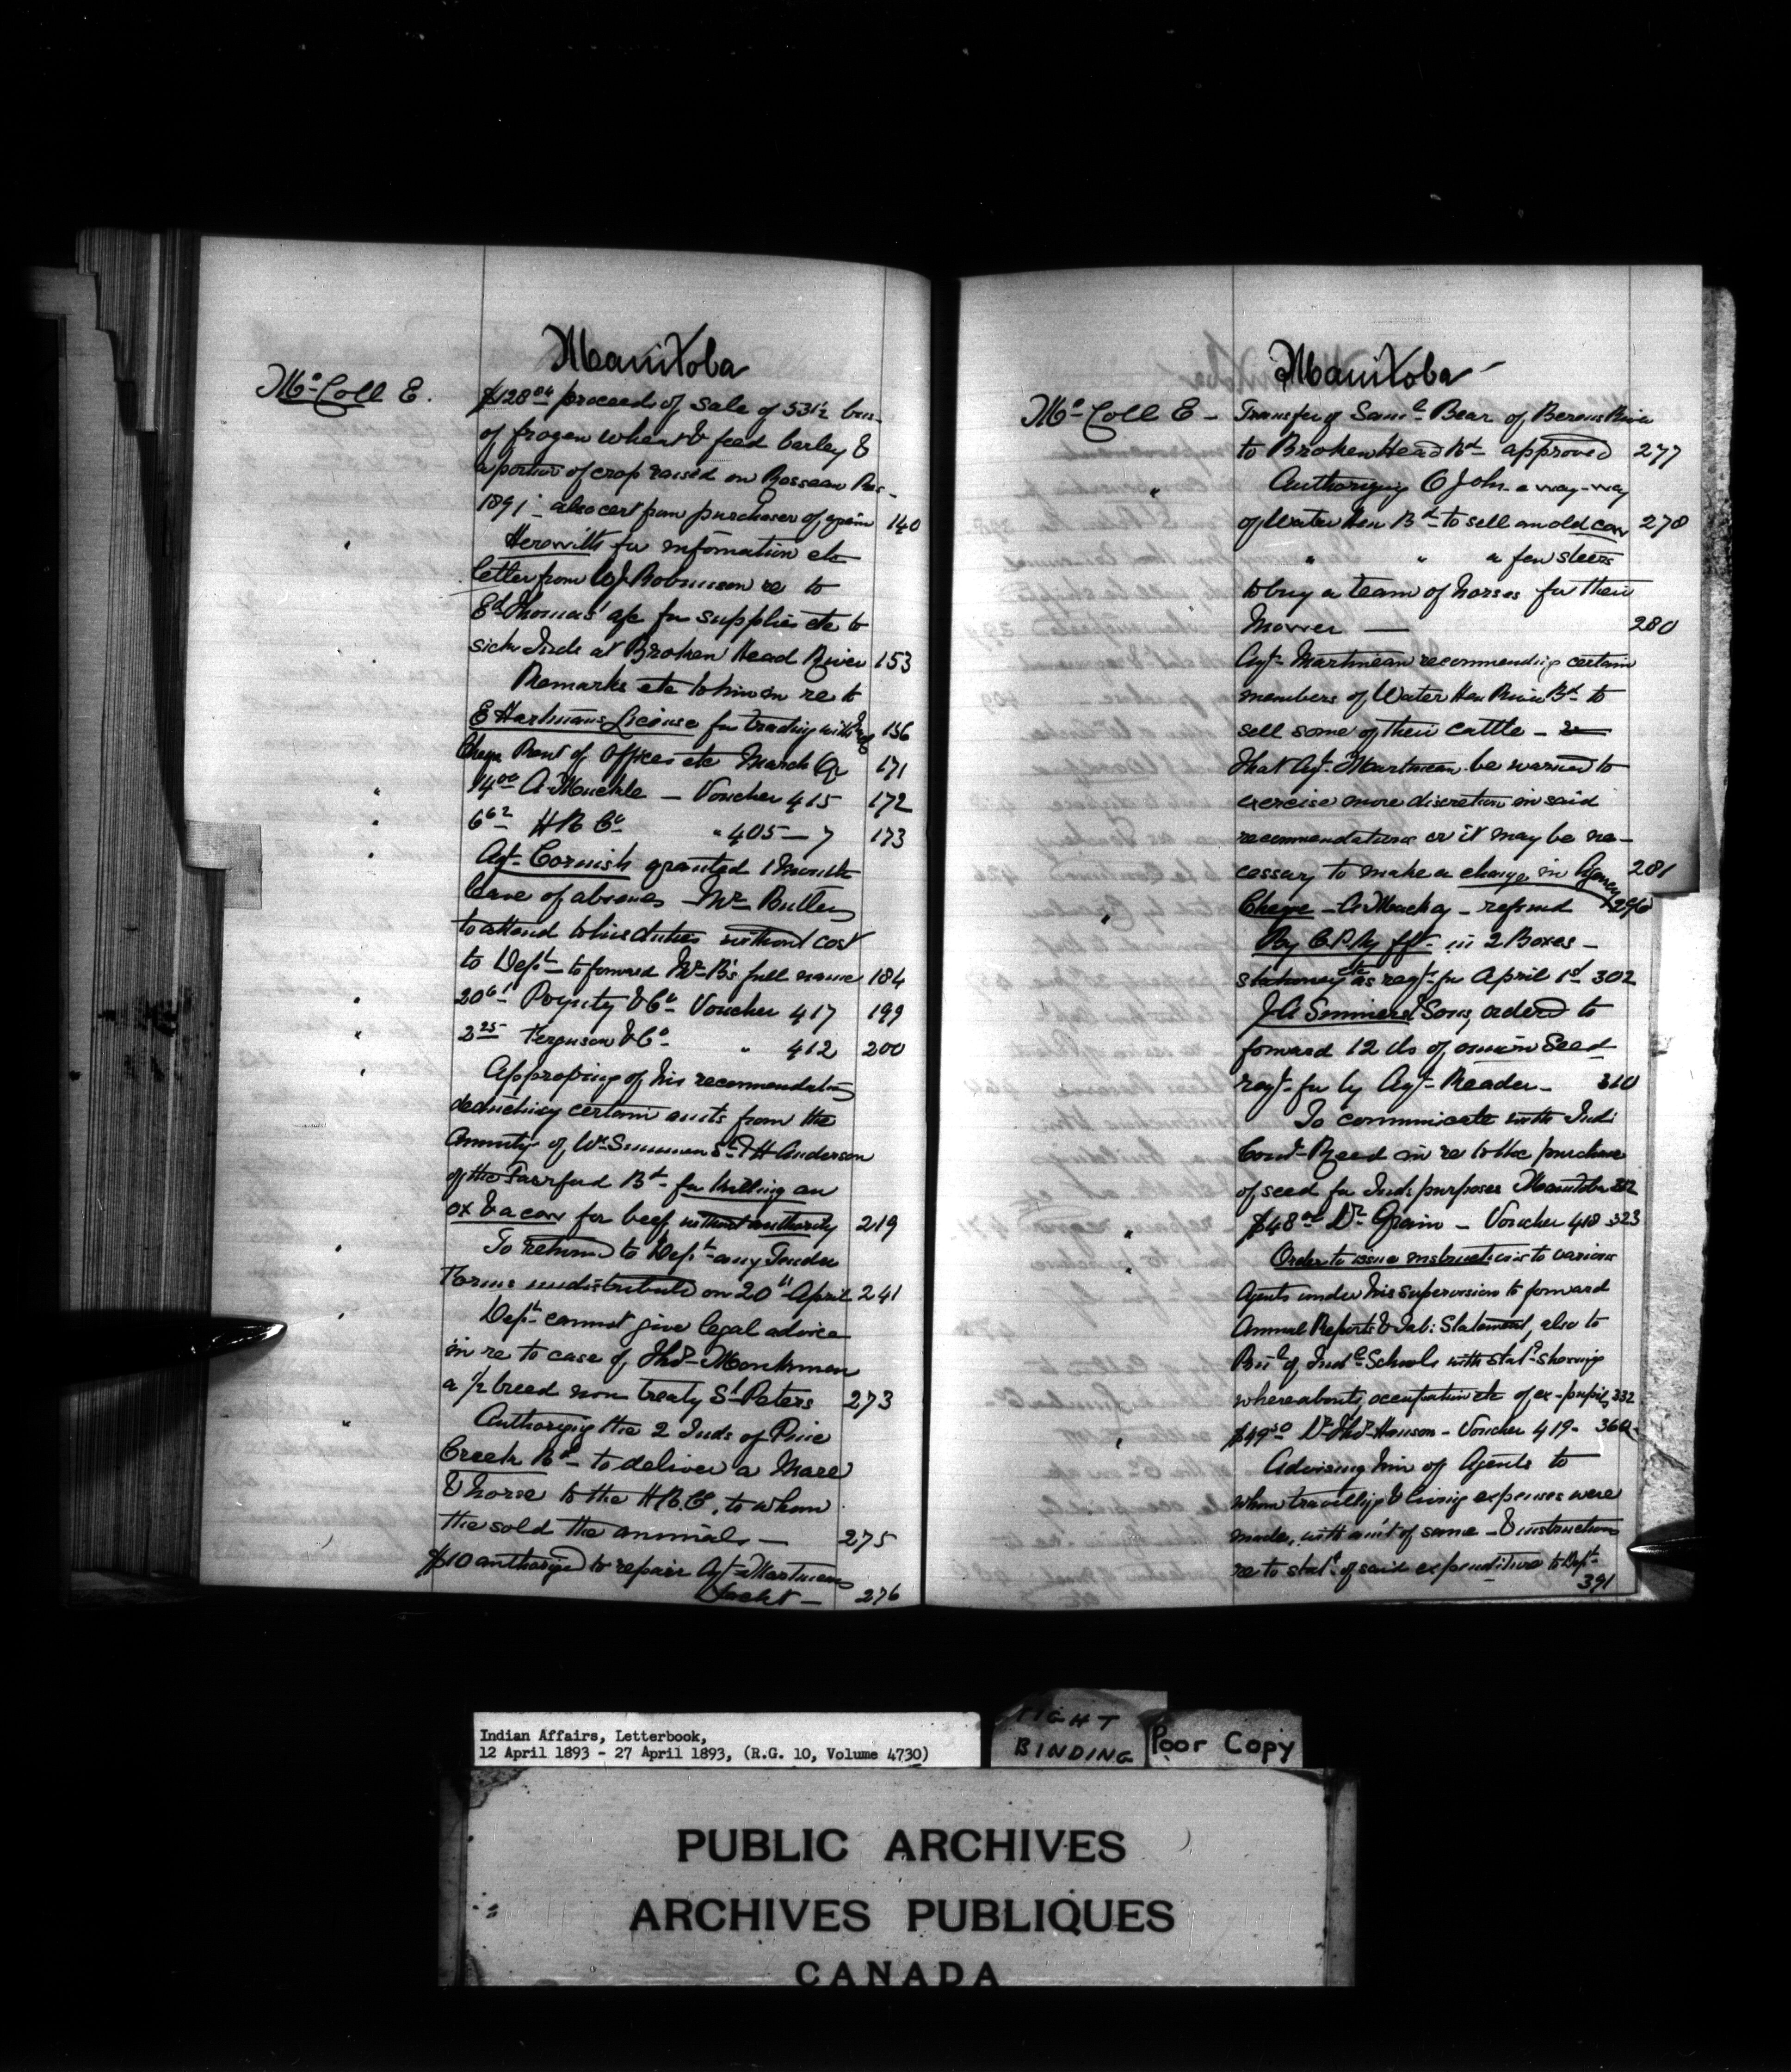 Manitoba
McColl E.
$128.04 proceeds of sale of 531½ bus.
of frozen wheat & feed barley &
a portion of crop raised on Rosseau Res-
1891 - also cert from purchaser of grain 140
" Herewith for information etc
letter from W J Robinson re to
Ed Thomas' ap for supplies etc to
sick Inds at Broken Head River 153
" Remarks etc to him in re to
E Hartmans License for trading with Inds 156
Cheque Rent of Offices etc March Qr 171
" 14.00 A. Muckle — Voucher 415 172
" 6.62 H B Co " 405 — 7 173
" Agt Cornish granted 1 month
leave of absence — Mr Butler
to attend to his duties without cost
to Dept — to forward Mr B's full name 184
" 20.61 Poyntz & Co Voucher 417 199
" 2.25 Ferguson & Co " 412 200
" Approving of his recommendation
deducting certain amts from the
Annuity of Wm Sinnmen Sr & H Anderson
of the Fairford Bd for killing an
ox & a cow for beef without authority 219
" To return to Dept any Tender
Forms undistributed on 20th April 241
" Dept cannot give legal advice
in re to case of Thos Monkman
a ½ breed non treaty St Peters 273
" Authorizing the 2 Inds of Pine
Creek Bd to deliver a Mare
& horse to the H B Co, to whom
the sold the animals — 275
$10 authorized to repair Agt Martineau's
276
Manitoba
McColl E — Transfer of Saml Bear of Berens River
to Broken Head Bd approved 277
" Authorizing O John-a-way-way
of Water Hen Bd to sell an old cow 278
" " a few steers
to buy a team of horses for their
Mower — 280
Agt Martineau recommending certain
members of Water Hen River Bd to
sell some of their cattle —
That Agt Martineau be warned to
exercise more discretion in said
recommendations or it may be ne-
cessary to make a change in Agency 281
" Cheque — A Mackay — refund 296
By C.P.Ry fft in 2 Boxes —
stationery etc as reqd for April 1st 302
J A Simmers & Sons, ordered to
forward 12 lbs of onion Seed
reqd for by Agt Reader — 310
To communicate with Ind
Comr Reed in re to the purchase
of seed for Inds purposes Manitoba 312
" $48.00 Dr Grain — Voucher 418 323
" Order to issue instructions to various
Agents under his supervision to forward
Annual Reports & Tab: Statement, also to
Pril of Indl Schools with statt showing
whereabouts, occupation etc of ex-pupils 332
" $49.50 Dr Thos Hanson — Voucher 419 — 360
Advising him of Agents to
whom travelling & living expenses were
made, with amt of same — & instructions
re to statt of said expenditure to Dept
391
Indian Affairs, Letterbook,
12 April 1893 - 27 April 1893, (R.G. 10, Volume 4730)
TIGHT
BINDING
Poor Copy
PUBLIC ARCHIVES
ARCHIVES PUBLIQUES
CANADA